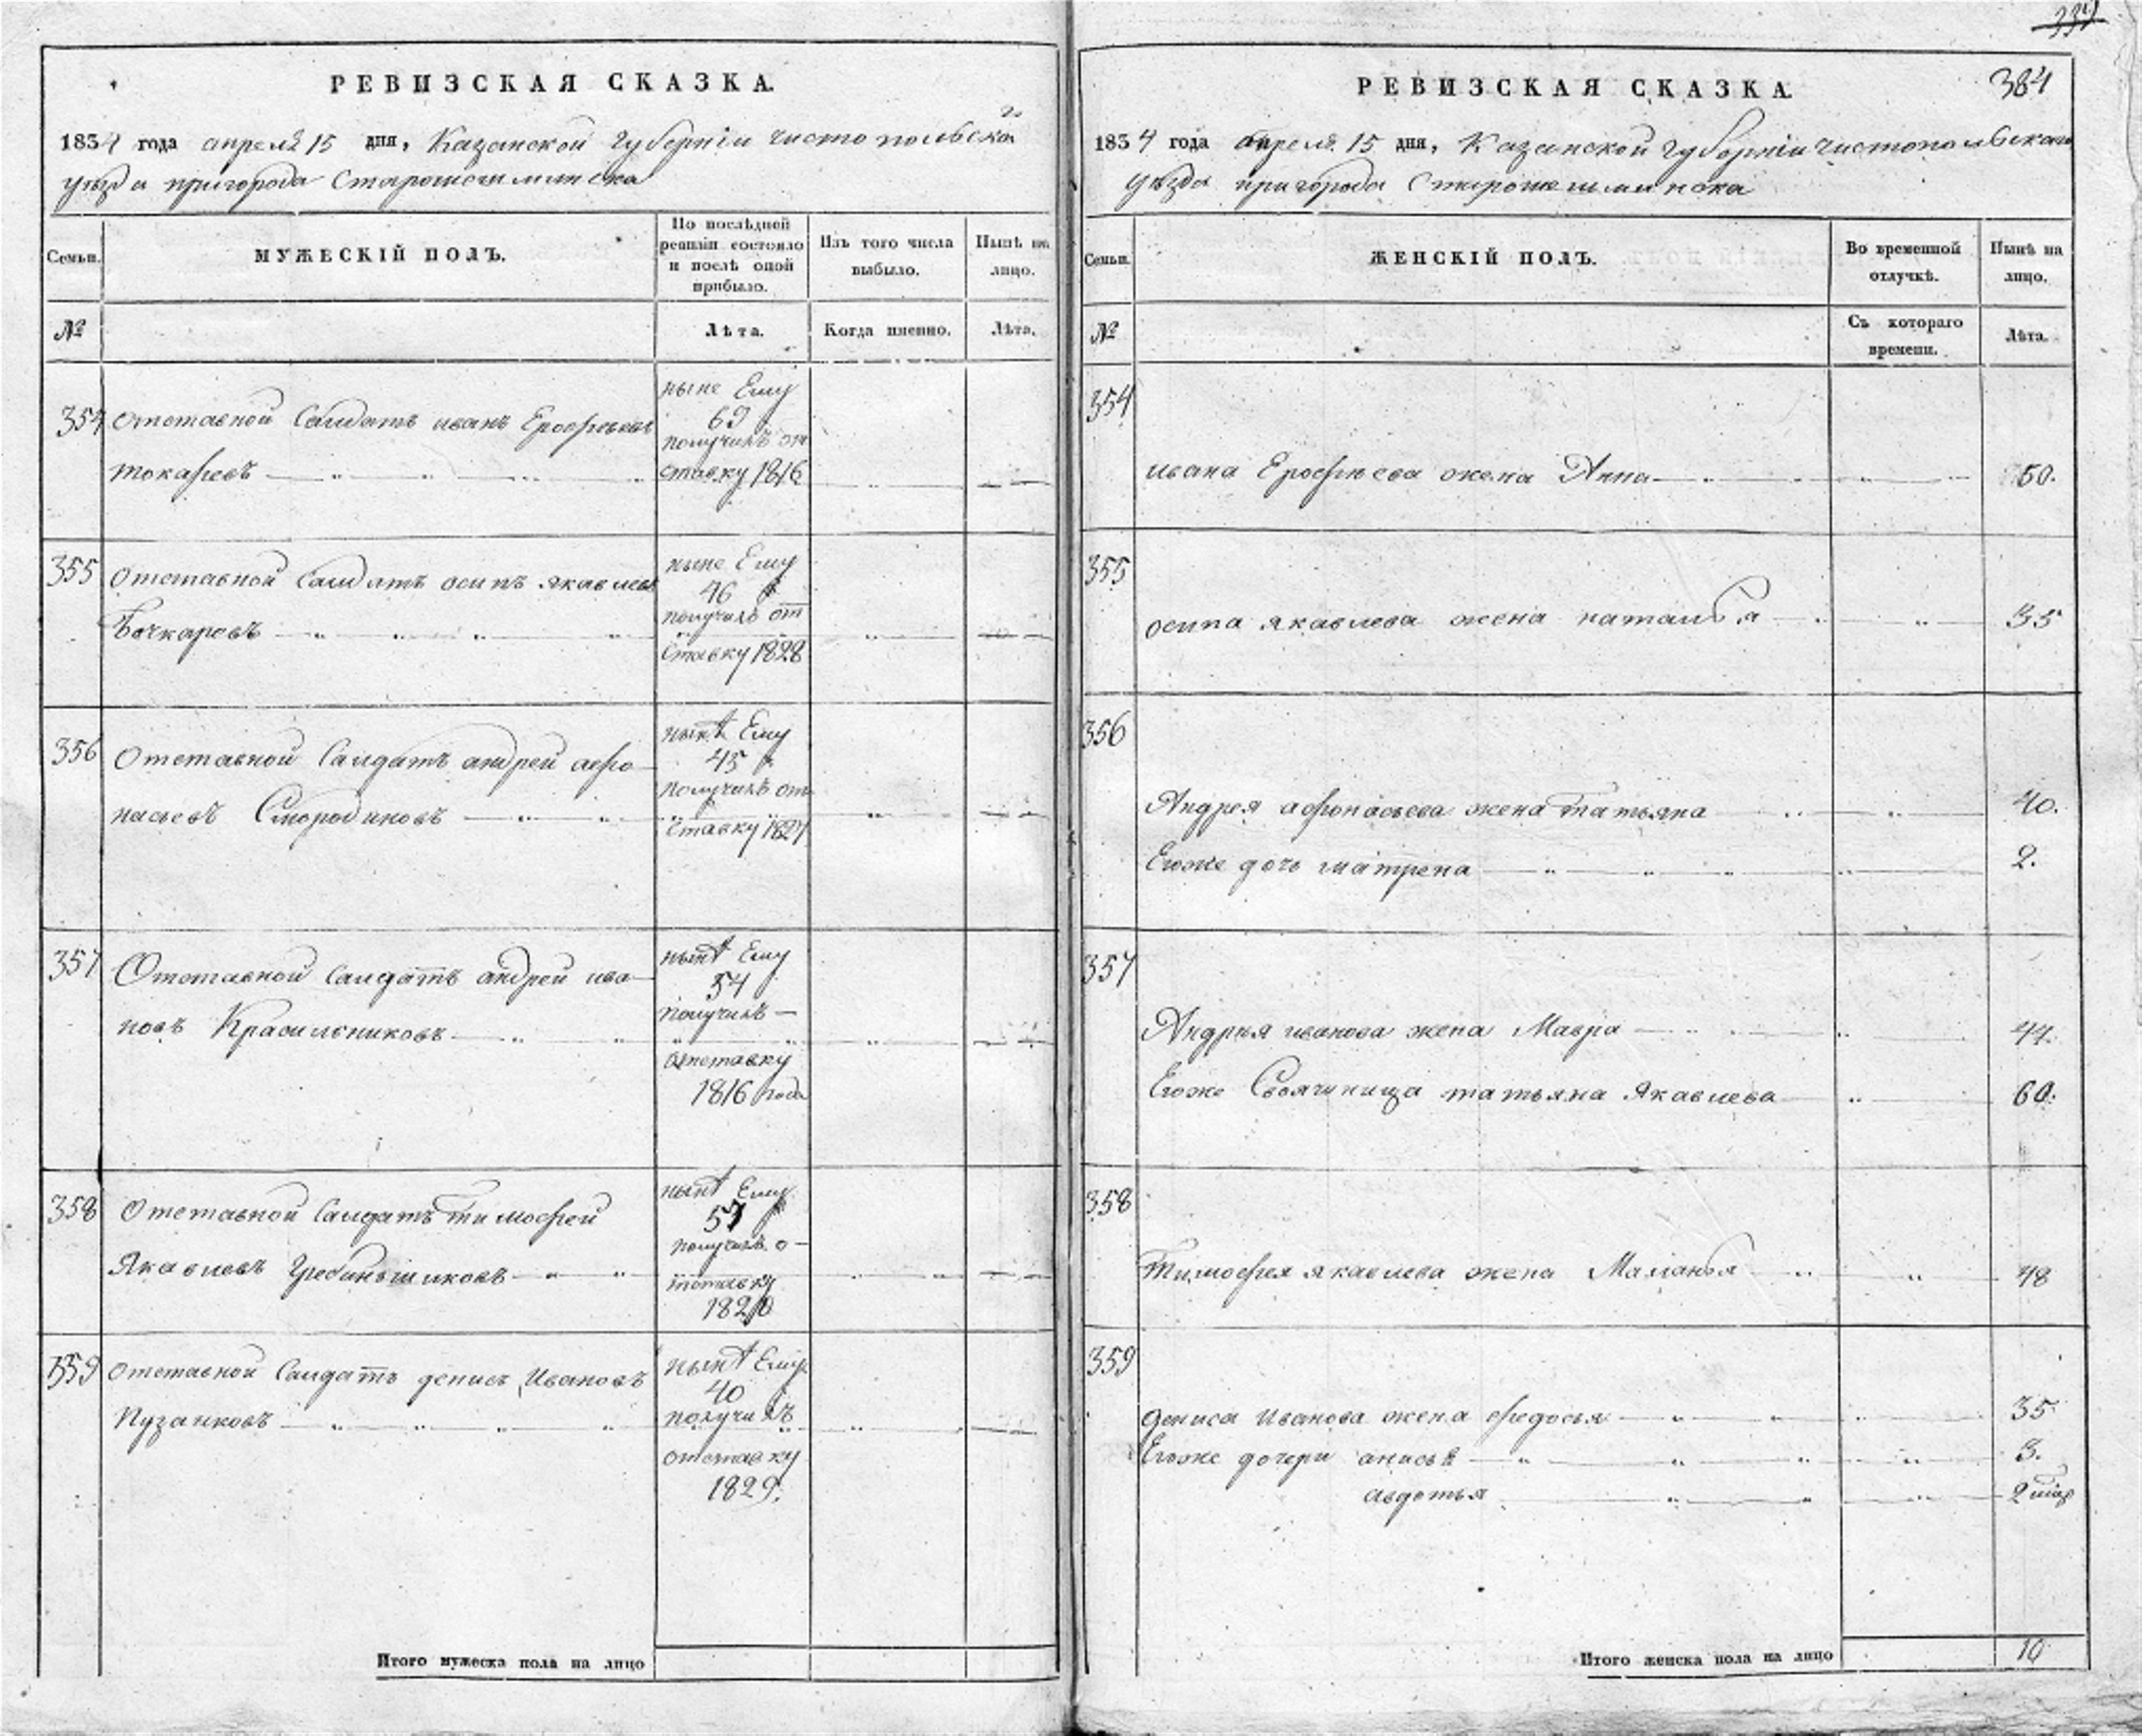 РЕВИЗСКАЯ СКАЗКА.
1834 года апреля 15 дня, Казанской Губернiи чистопольска го
уѣзда пригорода Старошешминска
Семьи.
МУЖЕСКIЙ ПОЛЪ.
По послѣдней
ревизiи состояло
и послѣ оной
прибыло.
Изъ того числа
выбыло.
Нынѣ на
лицо.
№
Лѣта.
Когда имянно.
Лѣта.
354
отставной Салдатъ иванъ Ерофеевъ
токаревъ
ныне Ему
69
получилъ от
ставку 1816
355
отставной Салдатъ осипъ якавлевъ
Бочкаревъ
ныне Ему
46
получилъ от
ставку 1828
356
Отставной Салдатъ андрей афо
насьевъ Смородиновъ
нынѣ Ему
45
получилъ от
ставку 1827
357
Отставной салдатъ андрей ива
новъ Красильниковъ
нынѣ Ему
54
получилъ
отставку
1816 года
358
Отставной Салдатъ тимофей
Якавлевъ Гребеньшиковъ
нынѣ Ему
57
получилъ о
тставку
1820
359
отставной Салдатъ денисъ Ивановъ
Пузанковъ
нынѣ Ему
40
получилъ
отставку
1829.
Итого мужеска пола на лицо
384
РЕВИЗСКАЯ СКАЗКА.
1834 года апреля 15 дня, Казанской Губернiи Чистопольскаго
уѣзда пригорода Старошешминска
Семьи.
ЖЕНСКIЙ ПОЛЪ.
Во временной
отлучкѣ.
Нынѣ на
лицо.
№
Съ котораго
времени.
Лѣта.
354
ивана Ерофѣева жена Анна 50.
355
осипа якавлева жена наталья 35
356
Андрея афонасьева жена татьяна 40.
Егоже дочь матрена 2.
357
Андрѣя иванова жена Мавра 44.
Егоже Своячиница татьяна Якавлева 60.
358
Тимофея якавлева жена Маланья 48
359
дениса Иванова жена федосья 35
Егоже дочери анисья 3.
авдотья 2
Итого женска пола на лицо 10